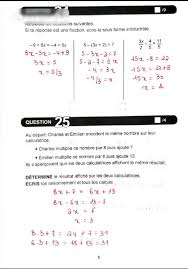 /9
équations suivantes.
Si ta réponse est une fraction, écris-la sous forme irréductible.
-9 + 8x = -4 + 5x
8x - 5x = -4 + 9
3x = 5
x = 5/3
5 - (3x + 2) = 7
5 - 3x - 2 = 7
5 - 2 - 7 = 3x
-4 = 3x
-4/3 = x
15x - 8 = 22
15x = 22 + 8
15x = 30
x = 2
QUESTION 25
/4
Au départ, Charles et Emilien encodent le même nombre sur leur
calculatrice.
• Charles multiplie ce nombre par 8 puis ajoute 7.
• Emilien multiplie ce nombre par 6 puis ajoute 13.
Ils s'aperçoivent que les deux calculatrices affichent le même résultat.
DÉTERMINE le nombre affiché sur les deux calculatrices.
ÉCRIS ton raisonnement et tous tes calculs.
8x + 7 = 6x + 13
8x - 6x = 13 - 7
2x = 6
x = 3
8·3 + 7 = 24 + 7 = 31
6·3 + 13 = 18 + 13 = 31